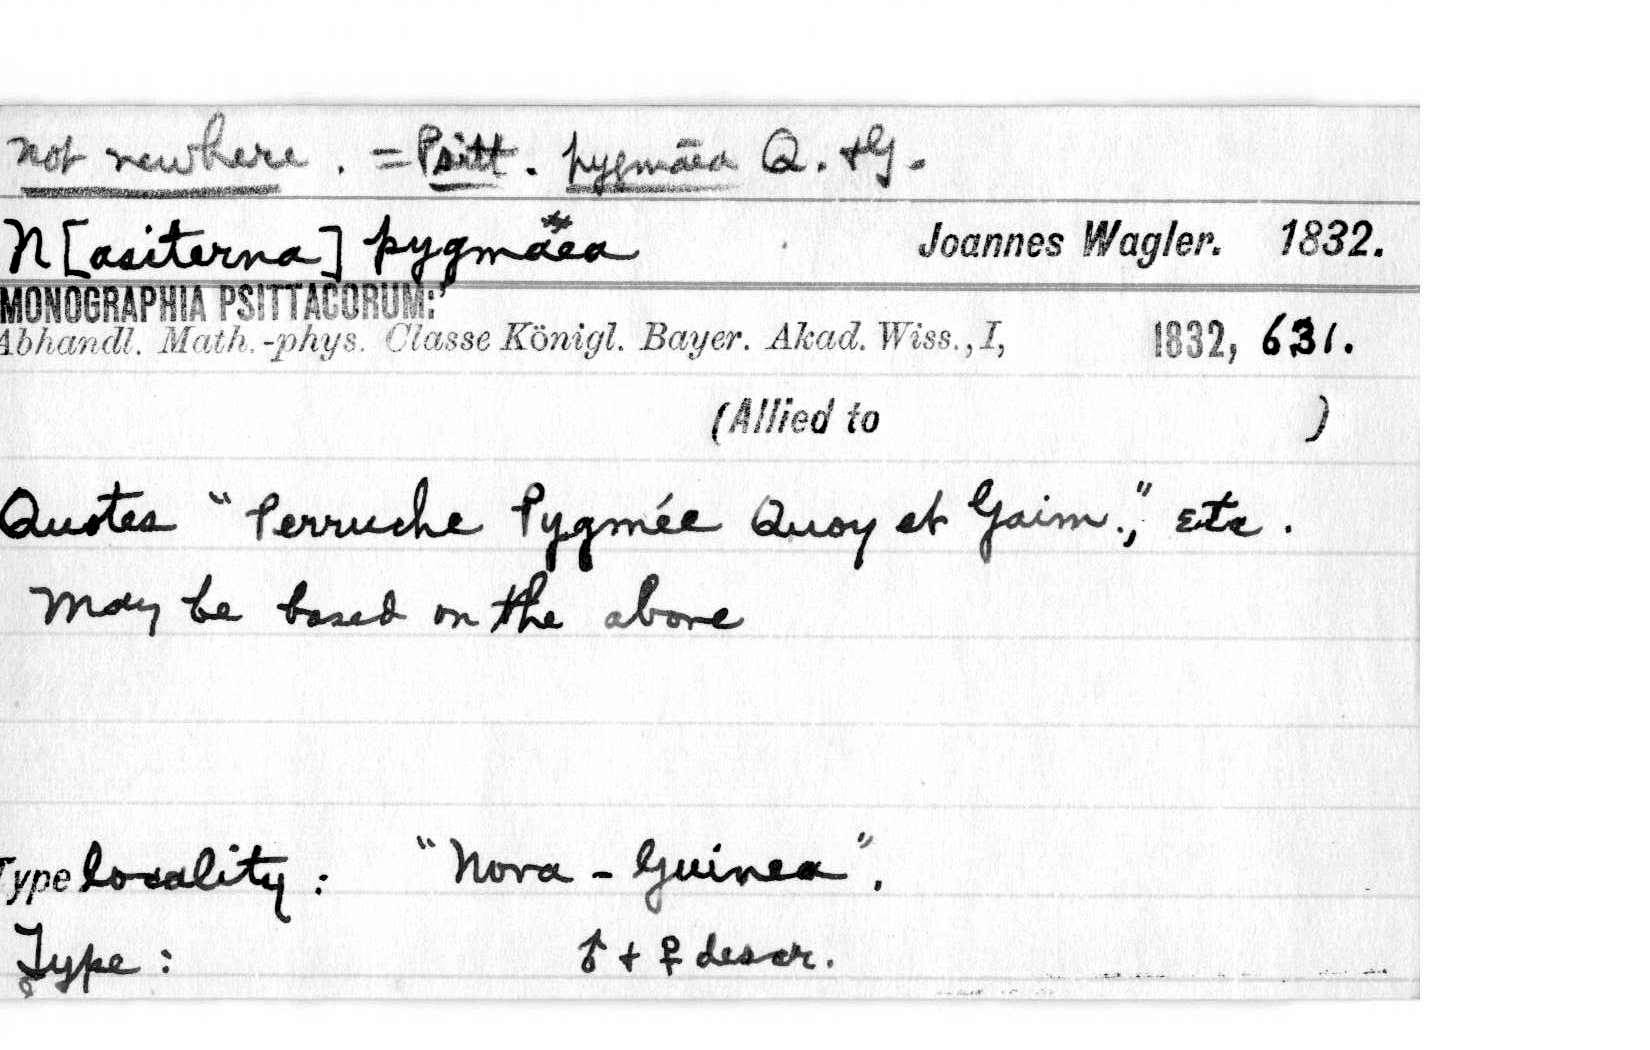 not new here . = Psitt. pygmāea Q. + G.
N[asiterna] pygmäea Joannes Wagler. 1832.
MONOGRAPHIA PSITTACORUM:
Abhandl. Math.-phys. Classe Königl. Bayer. Akad. Wiss., I, 1832, 631.
(Allied to )
Quotes "Perruche Pygmée Quoy et Gaim.," etc.
May be based on the above
Type locality: "Nova - Guinea".
Type: ♂ + ♀ descr.